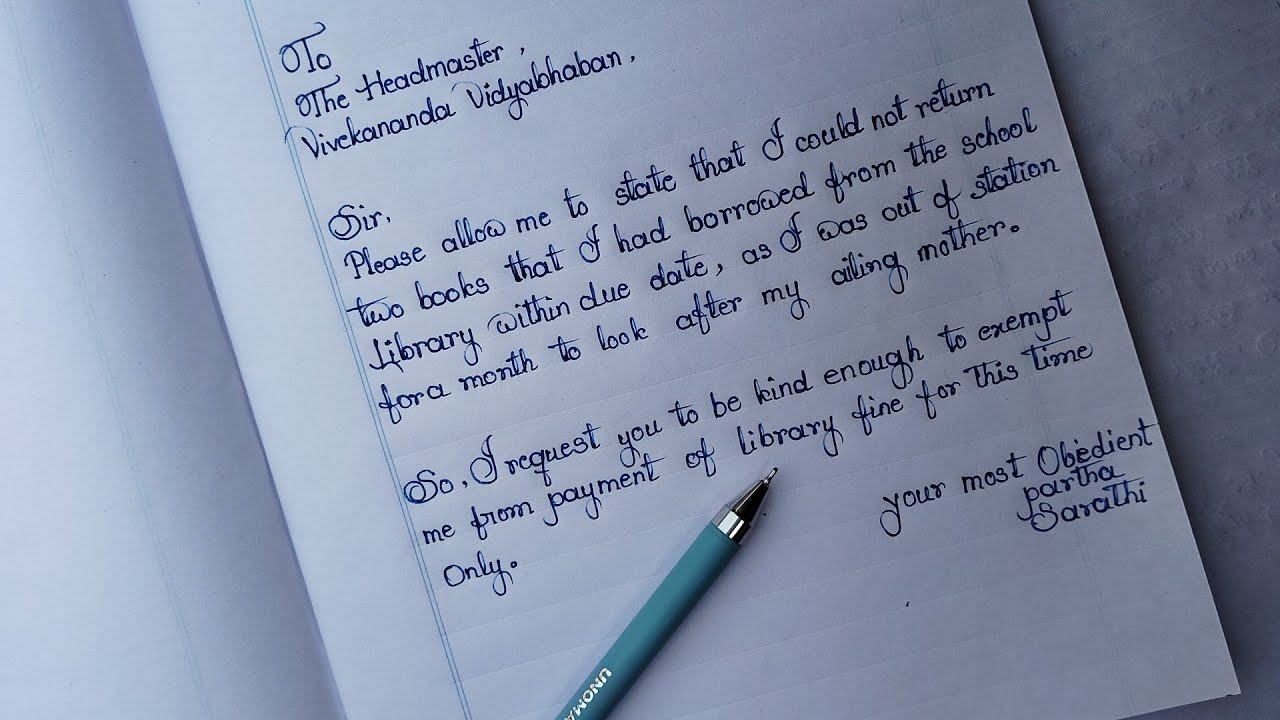 To
The Headmaster,
Vivekananda Vidyabhaban.
Sir,
Please allow me to state that I could not return
two books that I had borrowed from the school
Library within due date, as I was out of station
for a month to look after my ailing mother.
So, I request you to be kind enough to exempt
me from payment of library fine for this time
only.
your most Obedient
partha
Sarathi
UNOMA